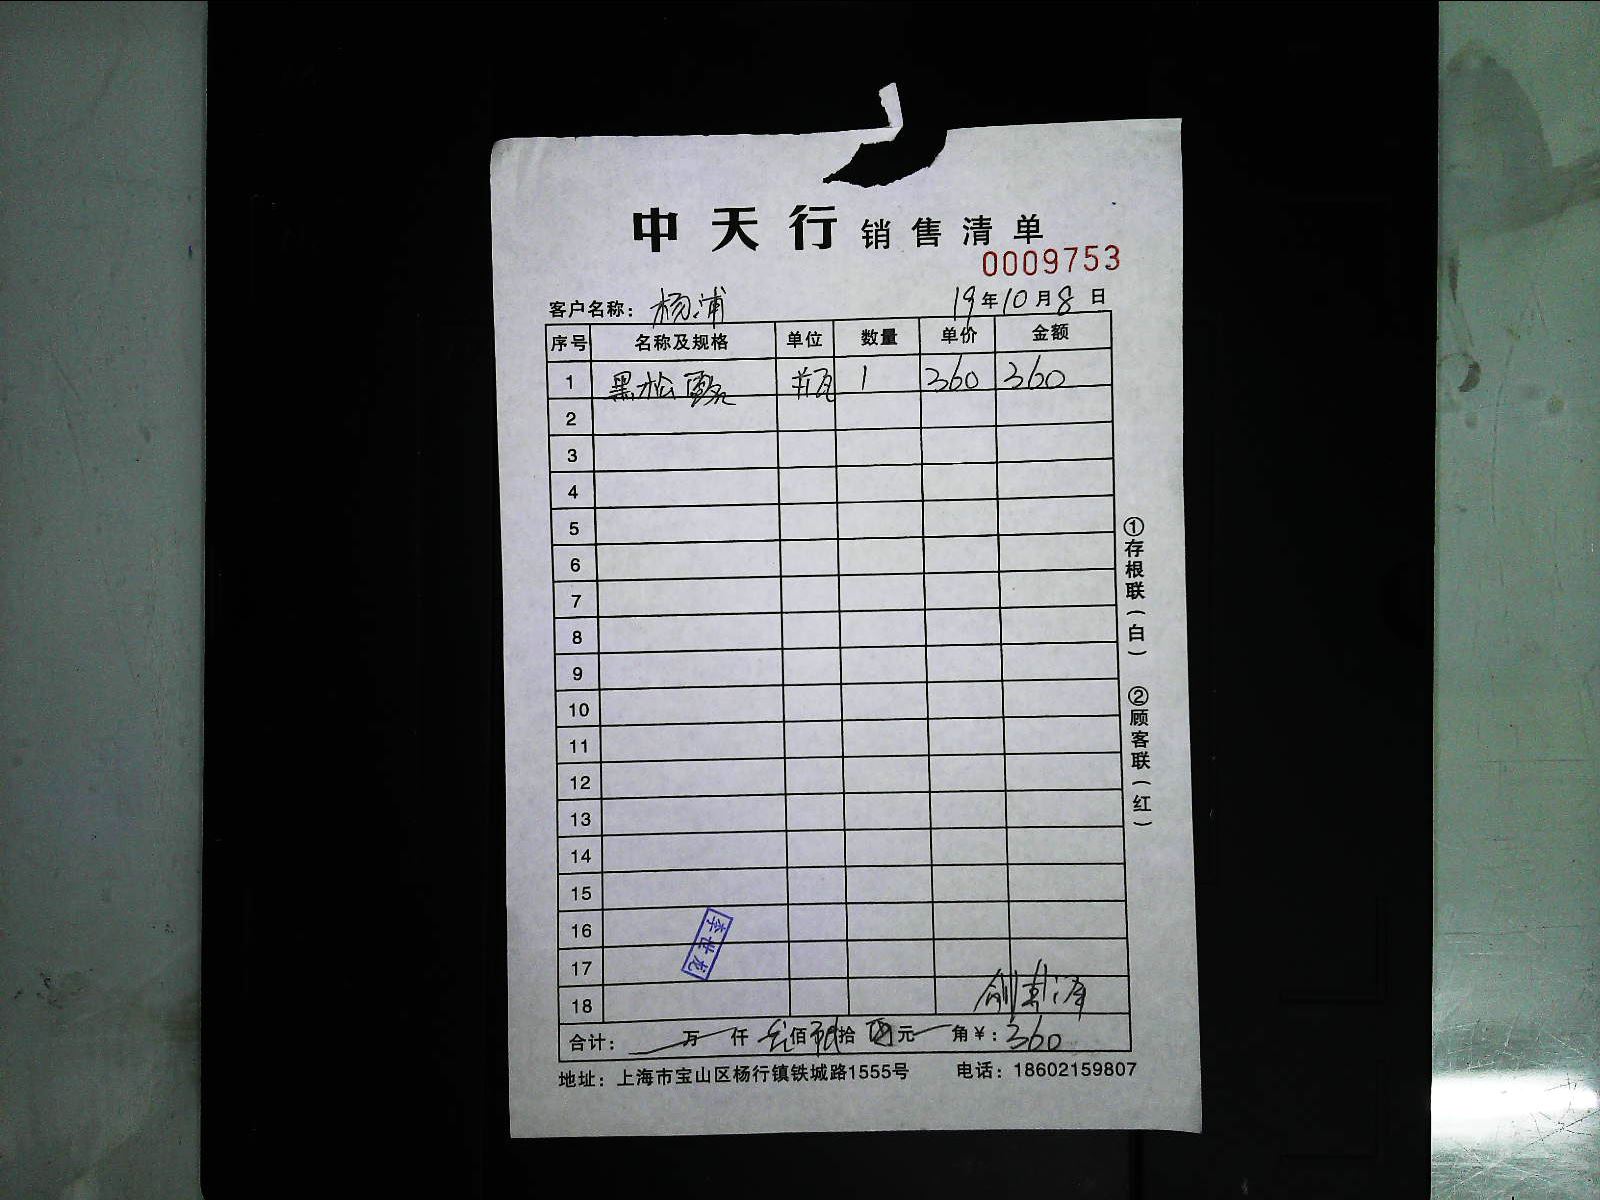 中天行销售清单
0009753
客户名称：杨浦 19年10月8日
序号 名称及规格 单位 数量 单价 金额
1 黑松露 瓶 1 360 360
2
3
4
5
6
7
8
9
10
11
12
13
14
15
16
17
18
李世龙
合计： 万 仟 佰 拾 元 角￥：360
地址：上海市宝山区杨行镇铁城路1555号 电话：18602159807
①存根联（白） ②顾客联（红）